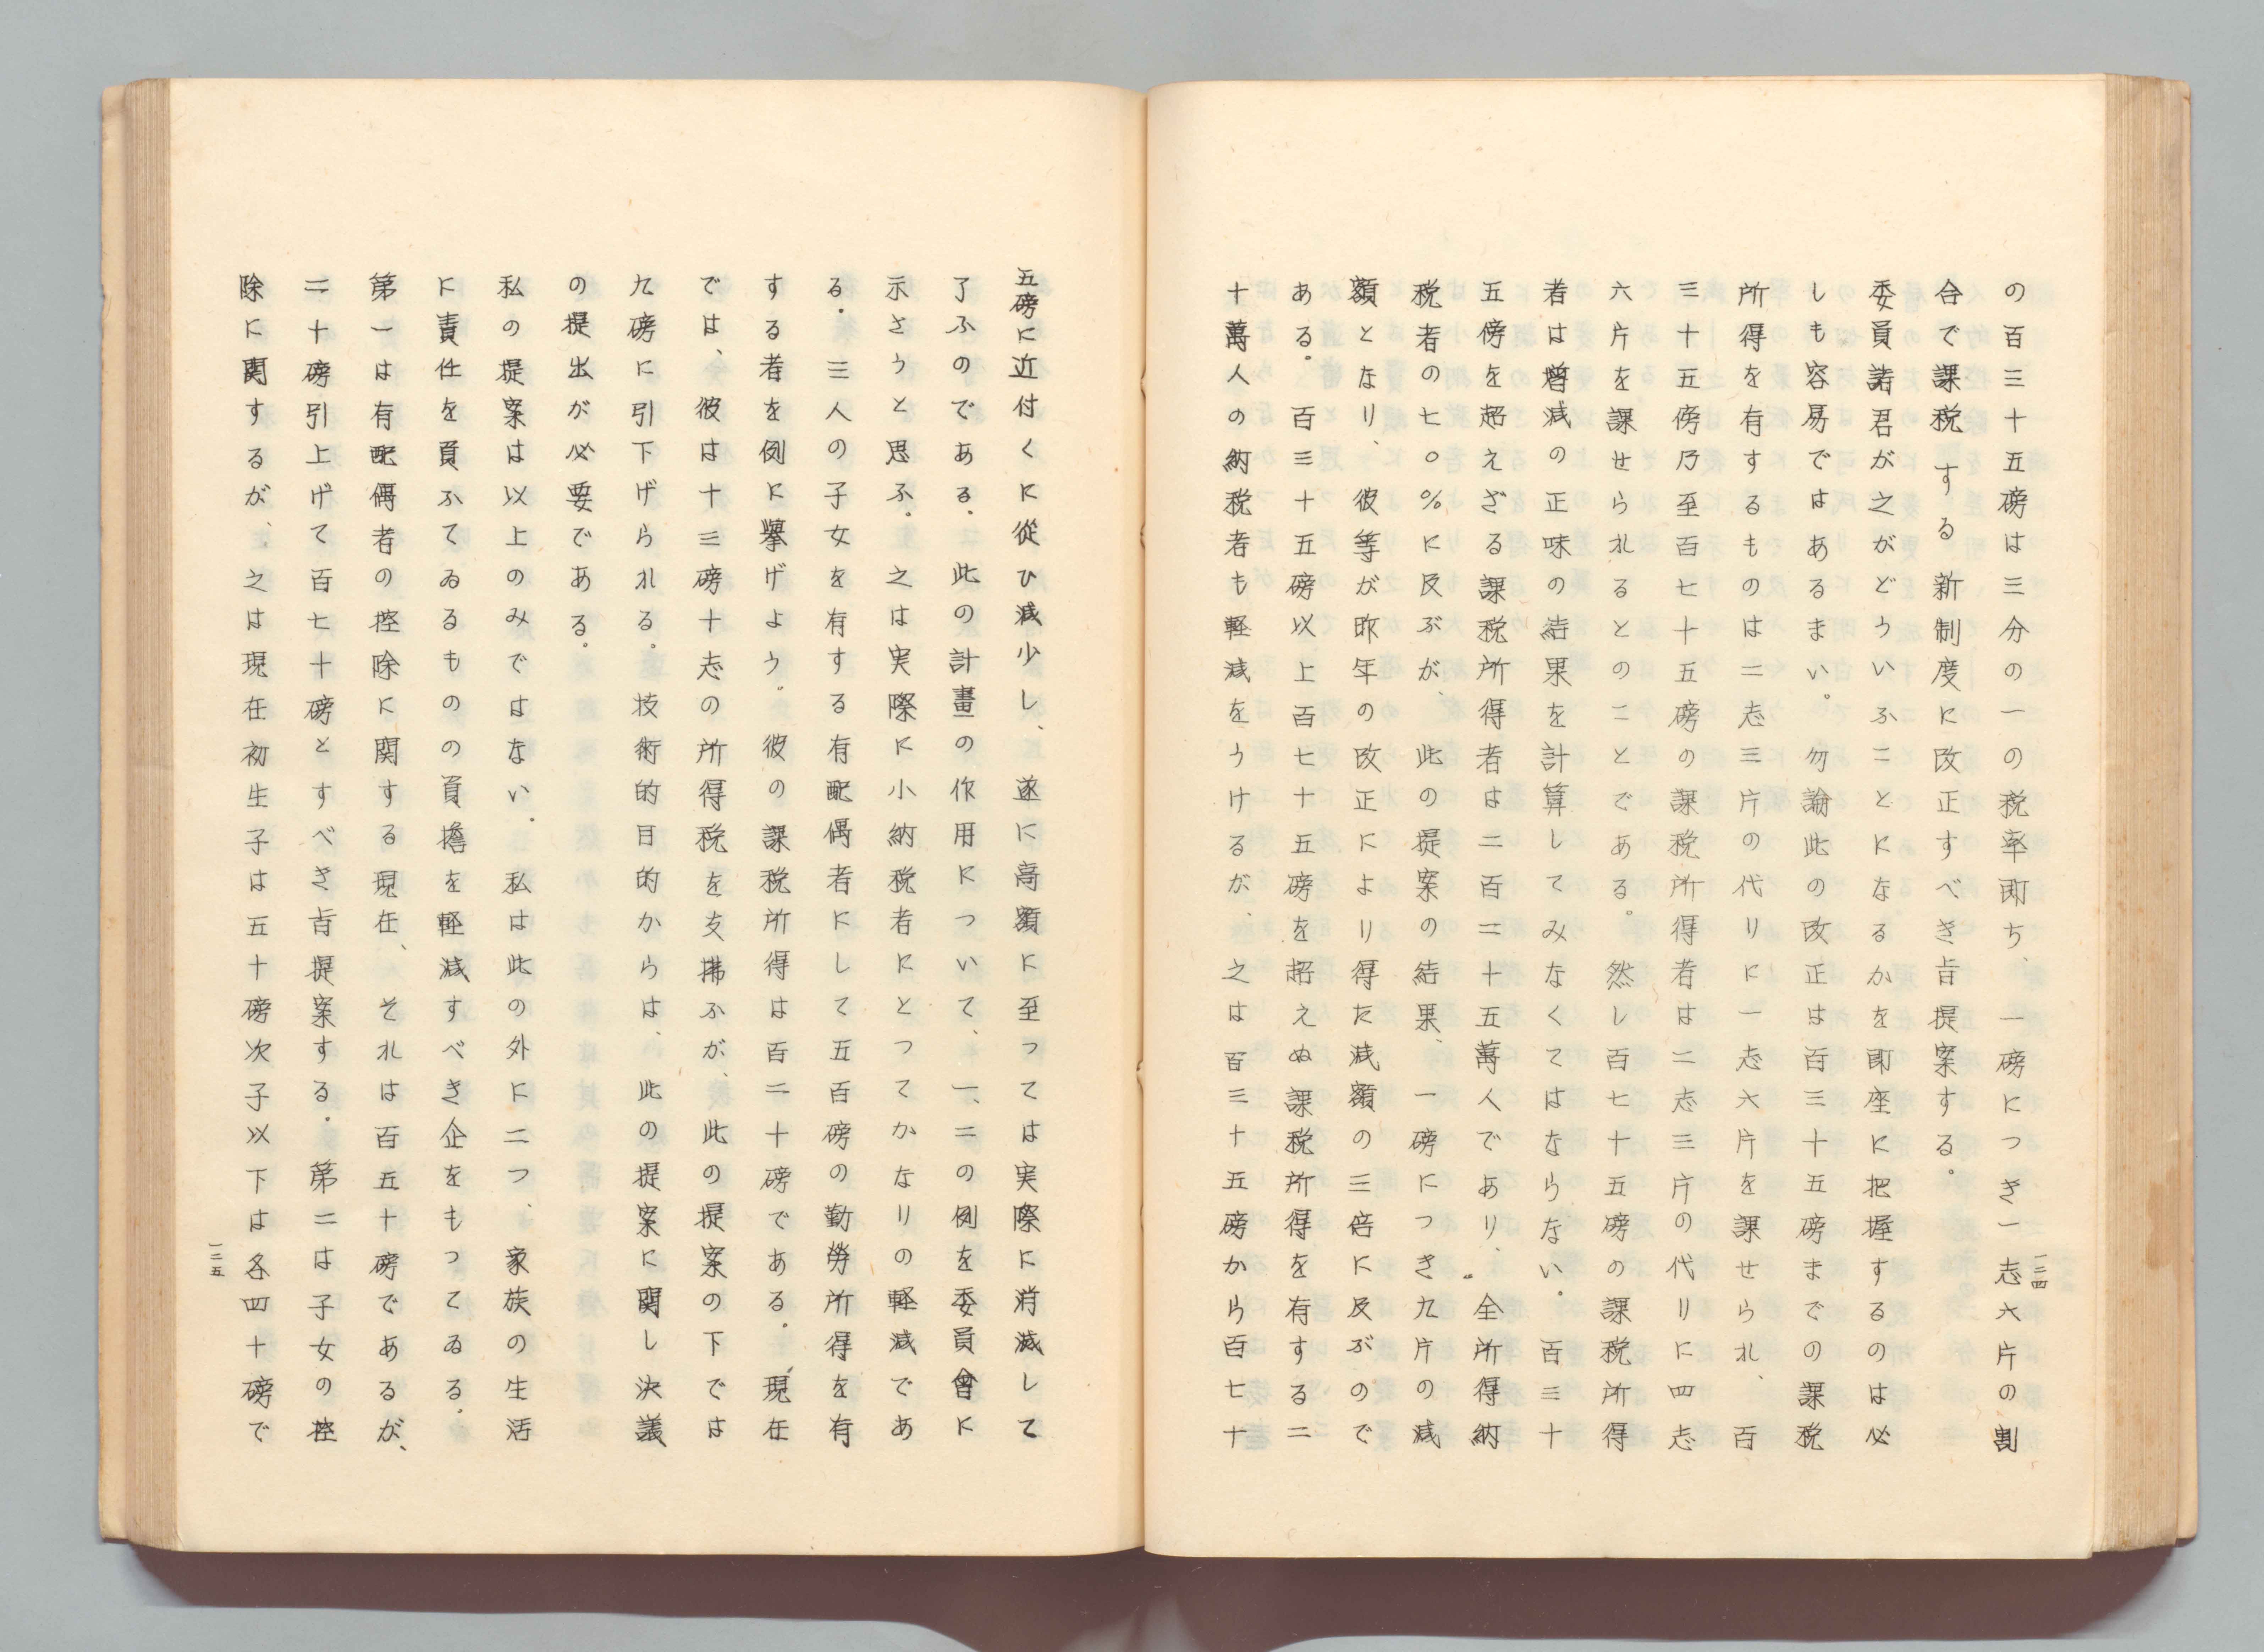 の百三十五磅は三分の一の税率卽ち、一磅につき一志六片の割
合で課税する新制度に改正すべき旨提案する。
委員諸君が之がどういふことになるかを卽座に把握するのは必
しも容易ではあるまい。勿論此の改正は百三十五磅までの課税
所得を有するものは二志三片の代りに一志六片を課せられ、百
三十五傍乃至百七十五磅の課税所得者は二志三片の代りに四志
六片を課せられるとのことである。然し百七十五磅の課税所得
者は増減の正味の結果を計算してみなくてはならない。百三十
五傍を超えざる課税所得者は二百二十五萬人であり、全所得納
税者の七〇%に反ぶが、此の提案の結果、一磅につき九片の減
額となり、彼等が昨年の改正により得た減額の三倍に反ぶので
ある。百三十五磅以上百七十五磅を超えぬ課税所得を有する二
十萬人の納税者も軽減をうけるが、之は百三十五磅から百七十
一二四
五磅に近付くに従ひ減少し、遂に高額に至っては実際に消滅して
了ふのである。此の計畫の作用について、一、二の例を委員會に
示さうと思ふ。之は実際に小納税者にとつてかなりの軽減であ
る。三人の子女を有する有配偶者にして五百磅の勤勞所得を有
する者を例に擧げよう。彼の課税所得は百二十磅である。現在
では、彼は十三磅十志の所得税を支拂ふが、此の提案の下では
九磅に引下げられる。技術的目的からは、此の提案に関し決議
の提出が必要である。
私の提案は以上のみではない。私は此の外に二つ、家族の生活
に責任を負ふてゐるものの負擔を軽減すべき企をもってゐる。
第一は有配偶者の控除に関する現在、それは百五十磅であるが、
二十磅引上げて百七十磅とすべき旨提案する。第二は子女の控
除に関するが、之は現在初生子は五十磅次子以下は各四十磅で
一二五